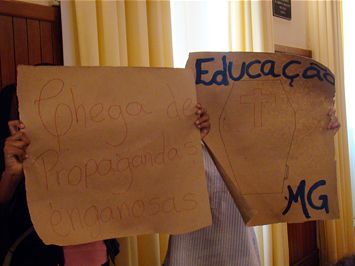 Chega de
Propagandas
enganosas
Educação
MG